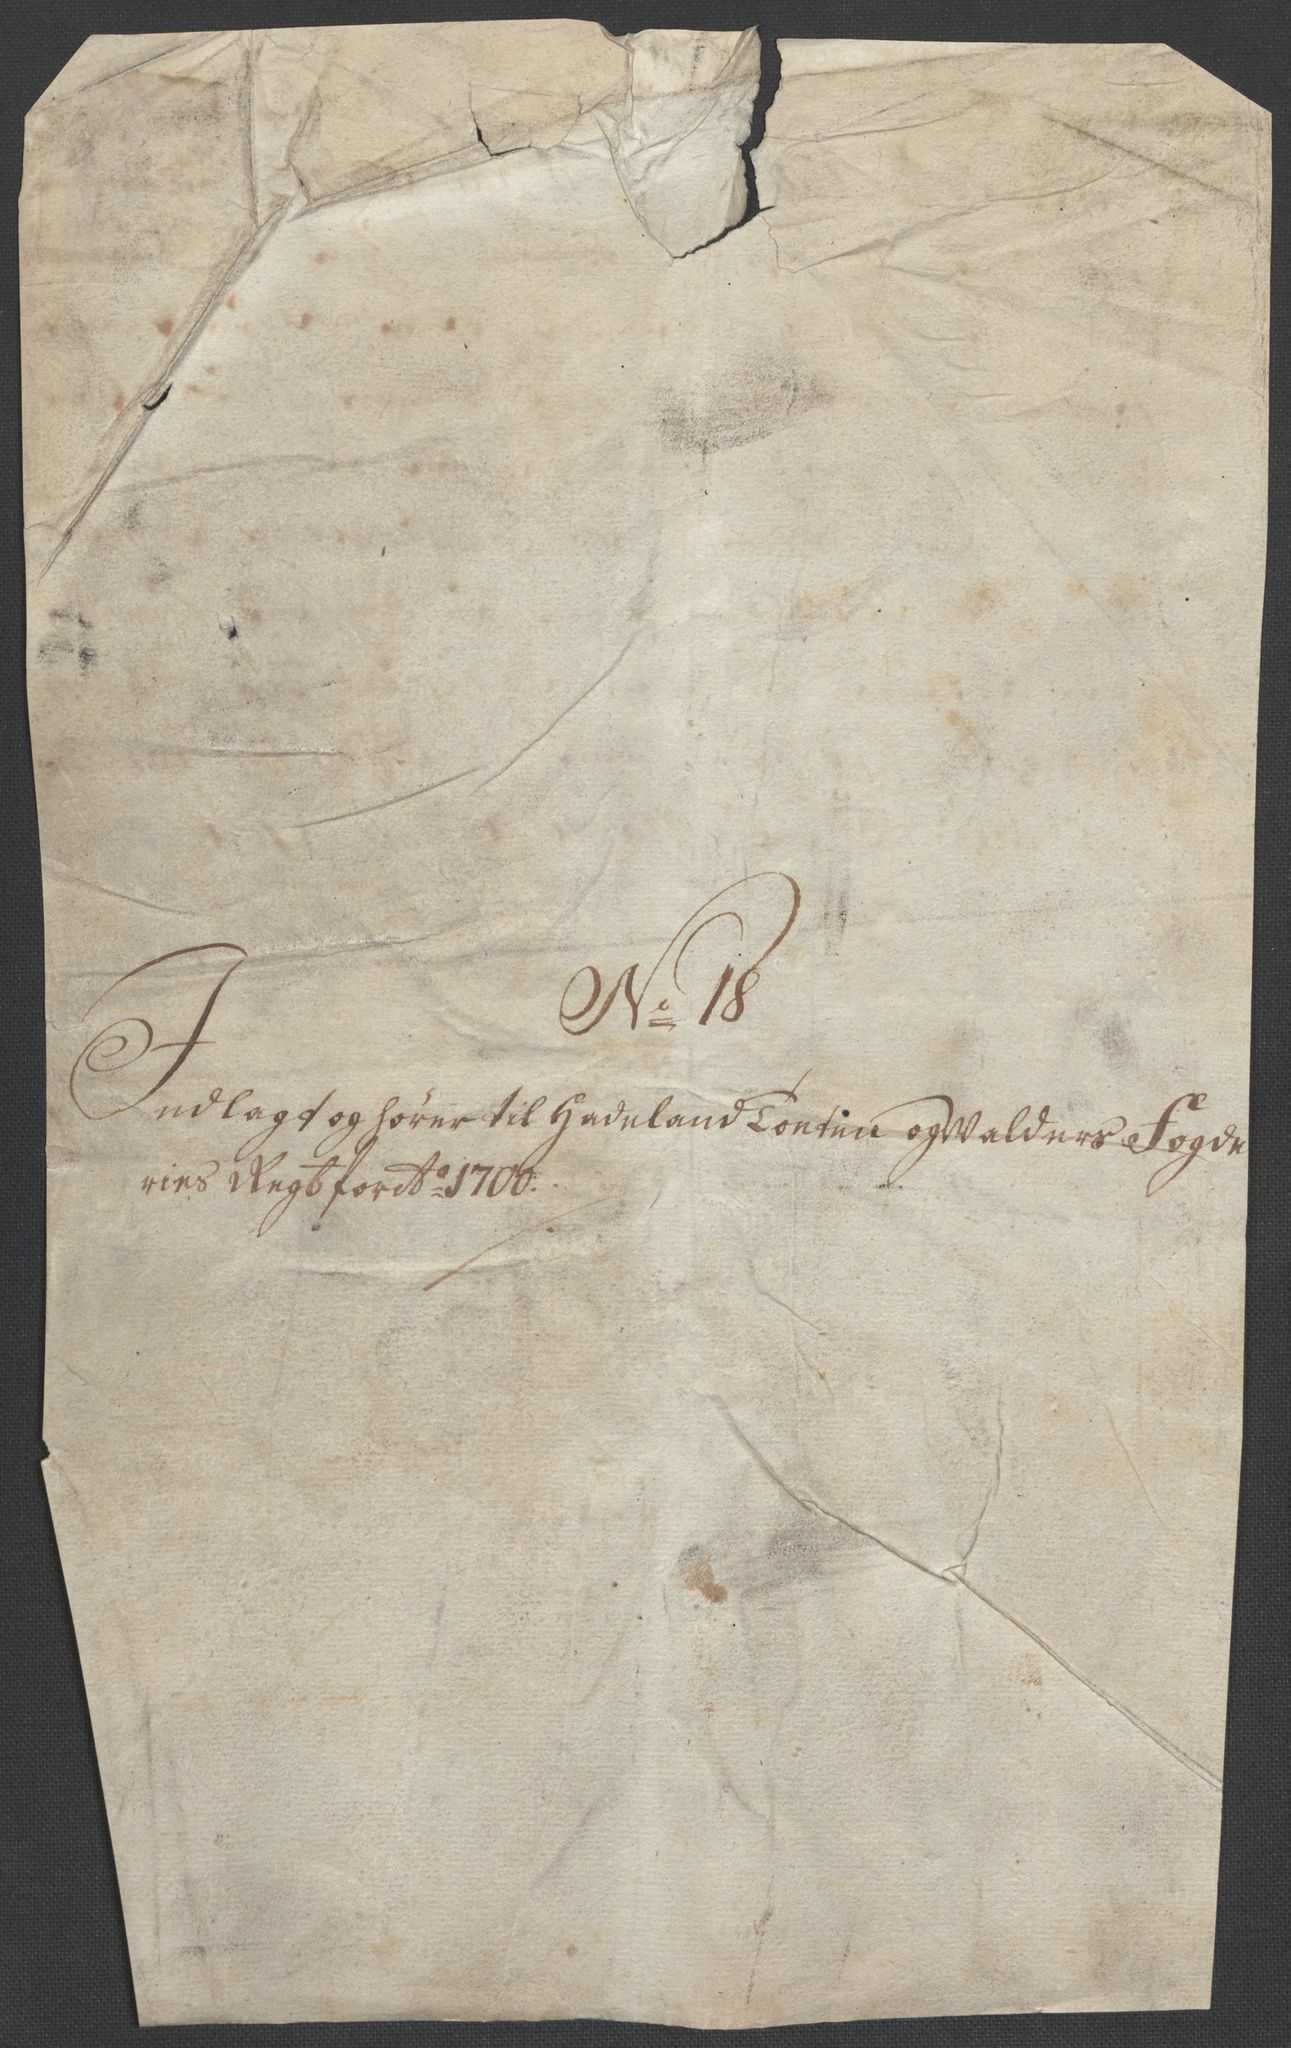 No 18
Indlagt og hører til Hadeland Totten og Valders Fogde
ries Regsb for Ao 1700.